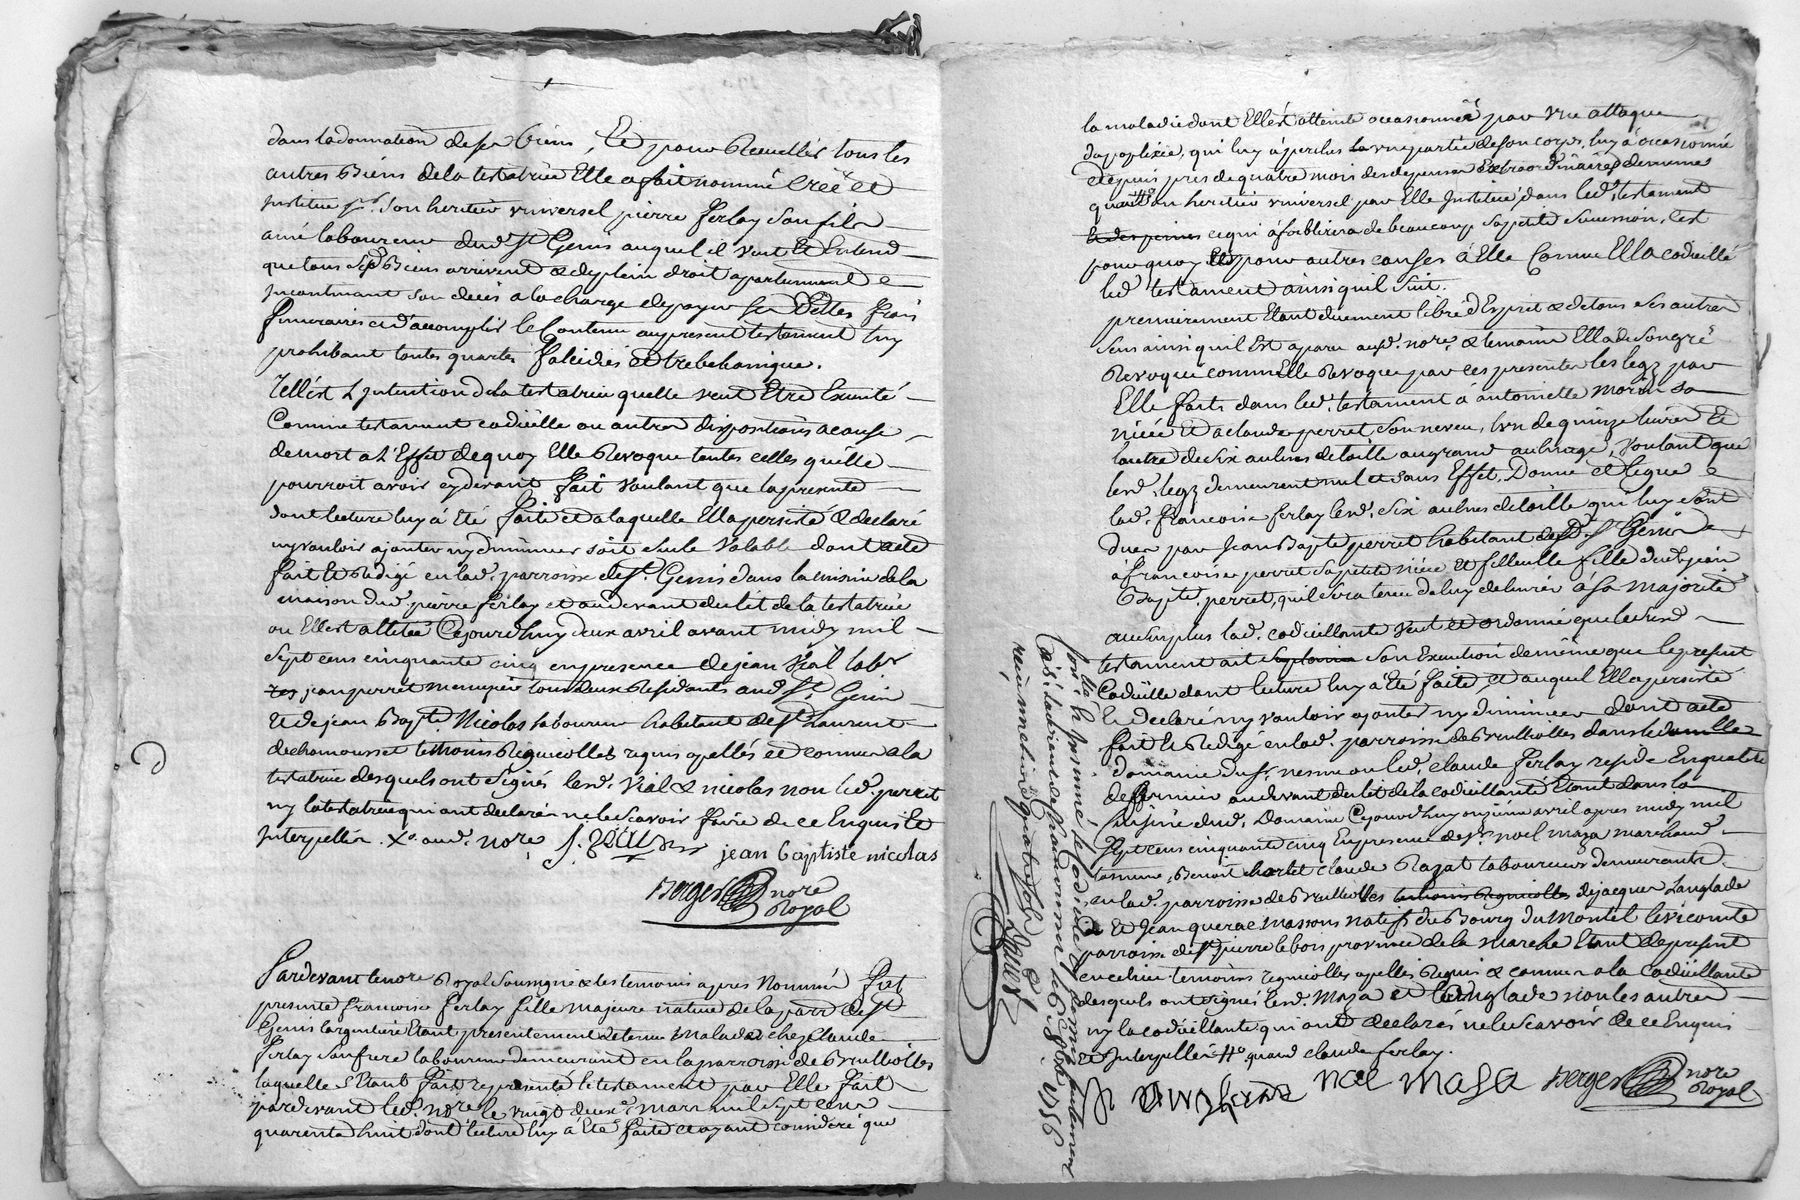 dans la donnation de ses biens, Et pour Recueillir tous les
autres Biens de la testatrice Elle a fait nommé Créé et
Institue pr. son heritier universel pierre ferlay son fils
ainé laboureur dud. St Genis auquel il veut Et Entend
que tous sesd Biens arrivent & de plein droit apartiennent
Incontinant son decés a la charge de payer ses Dettes frais
funeraires et d'accomplir le Contenu au present testament luy
prohibant toutes quartes falcidies et trebellianique.
Telle est L'Intention de la testatrice quelle veut Etre Executé
Comme testament codicille ou autres dispositions a cause
de mort a L'Effet de quoy Elle Revoque toutes celles quelle
pourroit avoir cydevant fait voulant que la presente
dont lecture luy á Eté faite et a laquelle Ella persisté & declaré
ny vouloir ajouter ny diminuer soit seule valable dont acte
fait Et Redigé en lad. parroisse de St. Genis dans la cuisine de la
maison dud. pierre ferlay et audevant du lit de la testatrice
ou Elle est allitée Cejourdhuy deux avril avant midy mil
sept cens cinquante cinq en presence de jean Vial labr
jean perret menuisier tous deux Residants aud St. Genis
Et de jean Bapte. Nicolas laboureur habitant de St Laurent
de chamousset temoins Regnicolles requis apellés et connus a la
testatrice desquels ont signés lesd. Vial & nicolas non led. perret
ny la testatrice qui ont declarés ne le scavoir faire de ce Enquis et
Interpellés. Xo. aud. nore J. Vial jean baptiste nicolas
Berger nore
Royal
Pardevant le nore Royal soussigné & les temoins apres Nommés fut
presente francoise ferlay fille majeure native de la parr de St
Genis largentiere Etant presentement detenue malade chez Claude
ferlay son frere laboureur demeurant en la parroisse de Brullioles
laquelle s'Etant fait representé le testament par Elle fait
pardevant led. nore le vingt deuxe. mars mil sept cens
quarente huit dont lecture luy á Eté faite et ayant consideré que
la maladie dont Elle est atteinte occasionnée par une attaque
dapoplixie, qui luy á perclus une partie de son corps, luy á occasionné
depuis pres de quatre mois des depenses Extraordinaires de meme
quau heritier universel par Elle Institué dans led. testament
ce qui áfoiblira de beaucoup sa petite succession, Cest
pour quoy Et pour autres causes á Elle Connue Ella codicillé
led. testament ainsi quil suit.
premierement Etant duement libre d'Esprit & de tous ses autres
sens ainsi quil Est aparu aud. nore. & temoins Ella de son gré
Revoqué comme Elle Revoque par ces presentes les legz par
Elle faits dans led. testament á antoinette morin sa
niece Et a claude perret son neveu, lun de quinze livres Et
lautre de six aulnes de toille au grand aulnage, voulant que
lesd. legz demeurent nul et sans Effet, Donne et legue
lad. francoise ferlay lesd. six aulnes de toille qui luy sont
dues par Jean Bapte perret habitant dud. St. Genis
á francoise perret sa petite niece Et filleulle fille dud jean
Bapte. perret, quil sera tenu de luy delivrer á sa majorité
au surplus lad. codicillante veut et ordonne que led. sus.d
testament ait son Execution de même que le present
Codicille dont lecture luy á Eté faite, et auquel Ella persisté
Et declaré ny vouloir ajouter ny diminuer dont acte
fait Et Redigé en lad. parroisse de Brullioles dans le
domaine du sr. nesme ou led. claude ferlay reside En qualité
de fermier audevant du lit de la codicillante Etant dans la
cuisine dud. Domaine Cejourdhuy onzieme avril apres midy mil
sept cens cinquante cinq En presence de sr. noel maza marchand
Benoit chartet claude Ragat laboureurs demeurants
en lad. parroisse de Brullioles temoins Regnicolles de jacques Langlade
Et Jean queraé massons natifs du Bourg du Montel levicomte
parroisse de St. pierre lebos province de la marche Etant de present
en ce lieu temoins regnicolles apellés Requis & connus a la Codicillante
desquels ont signés lesd. Maza et Langlade non les autres
ny la codicillante qui ont declarés ne le scavoir de ce Enquis
et Interpellés quand claude ferlay.
noel Maza Berger nore
Royal